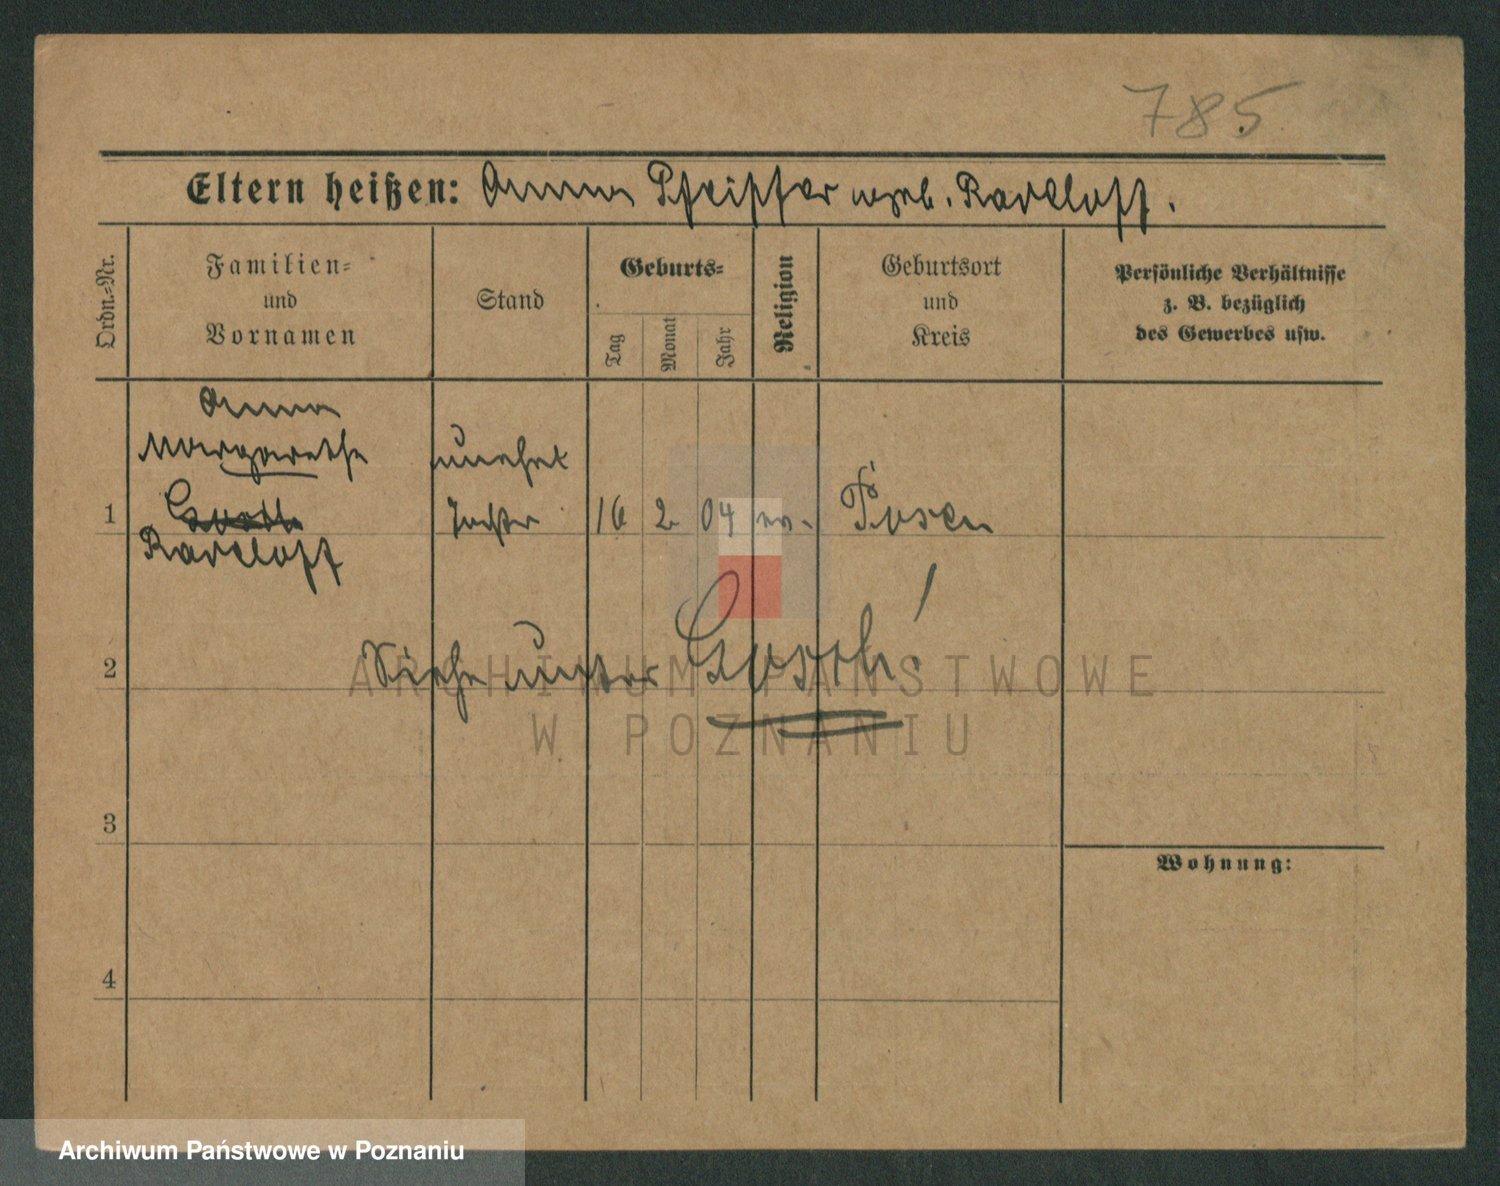 785
Eltern heißen: Anna Pfeiffer geb. Radloff.
Ordn.=Nr.
Familien=
und
Vornamen
Stand
Geburts=
Tag
Monat
Jahr
Religion
Geburtsort
und
Kreis
Persönliche Verhältnisse
z. B. bezüglich
des Gewerbes usw.
Anna
Margarethe
unehel
1
Tochter
16
2
04
ev.
Posen
Radloff
2
Siehe unter
ARCHIWUM PAŃSTWOWE
W POZNANIU
3
Wohnung:
4
Archiwum Państwowe w Poznaniu